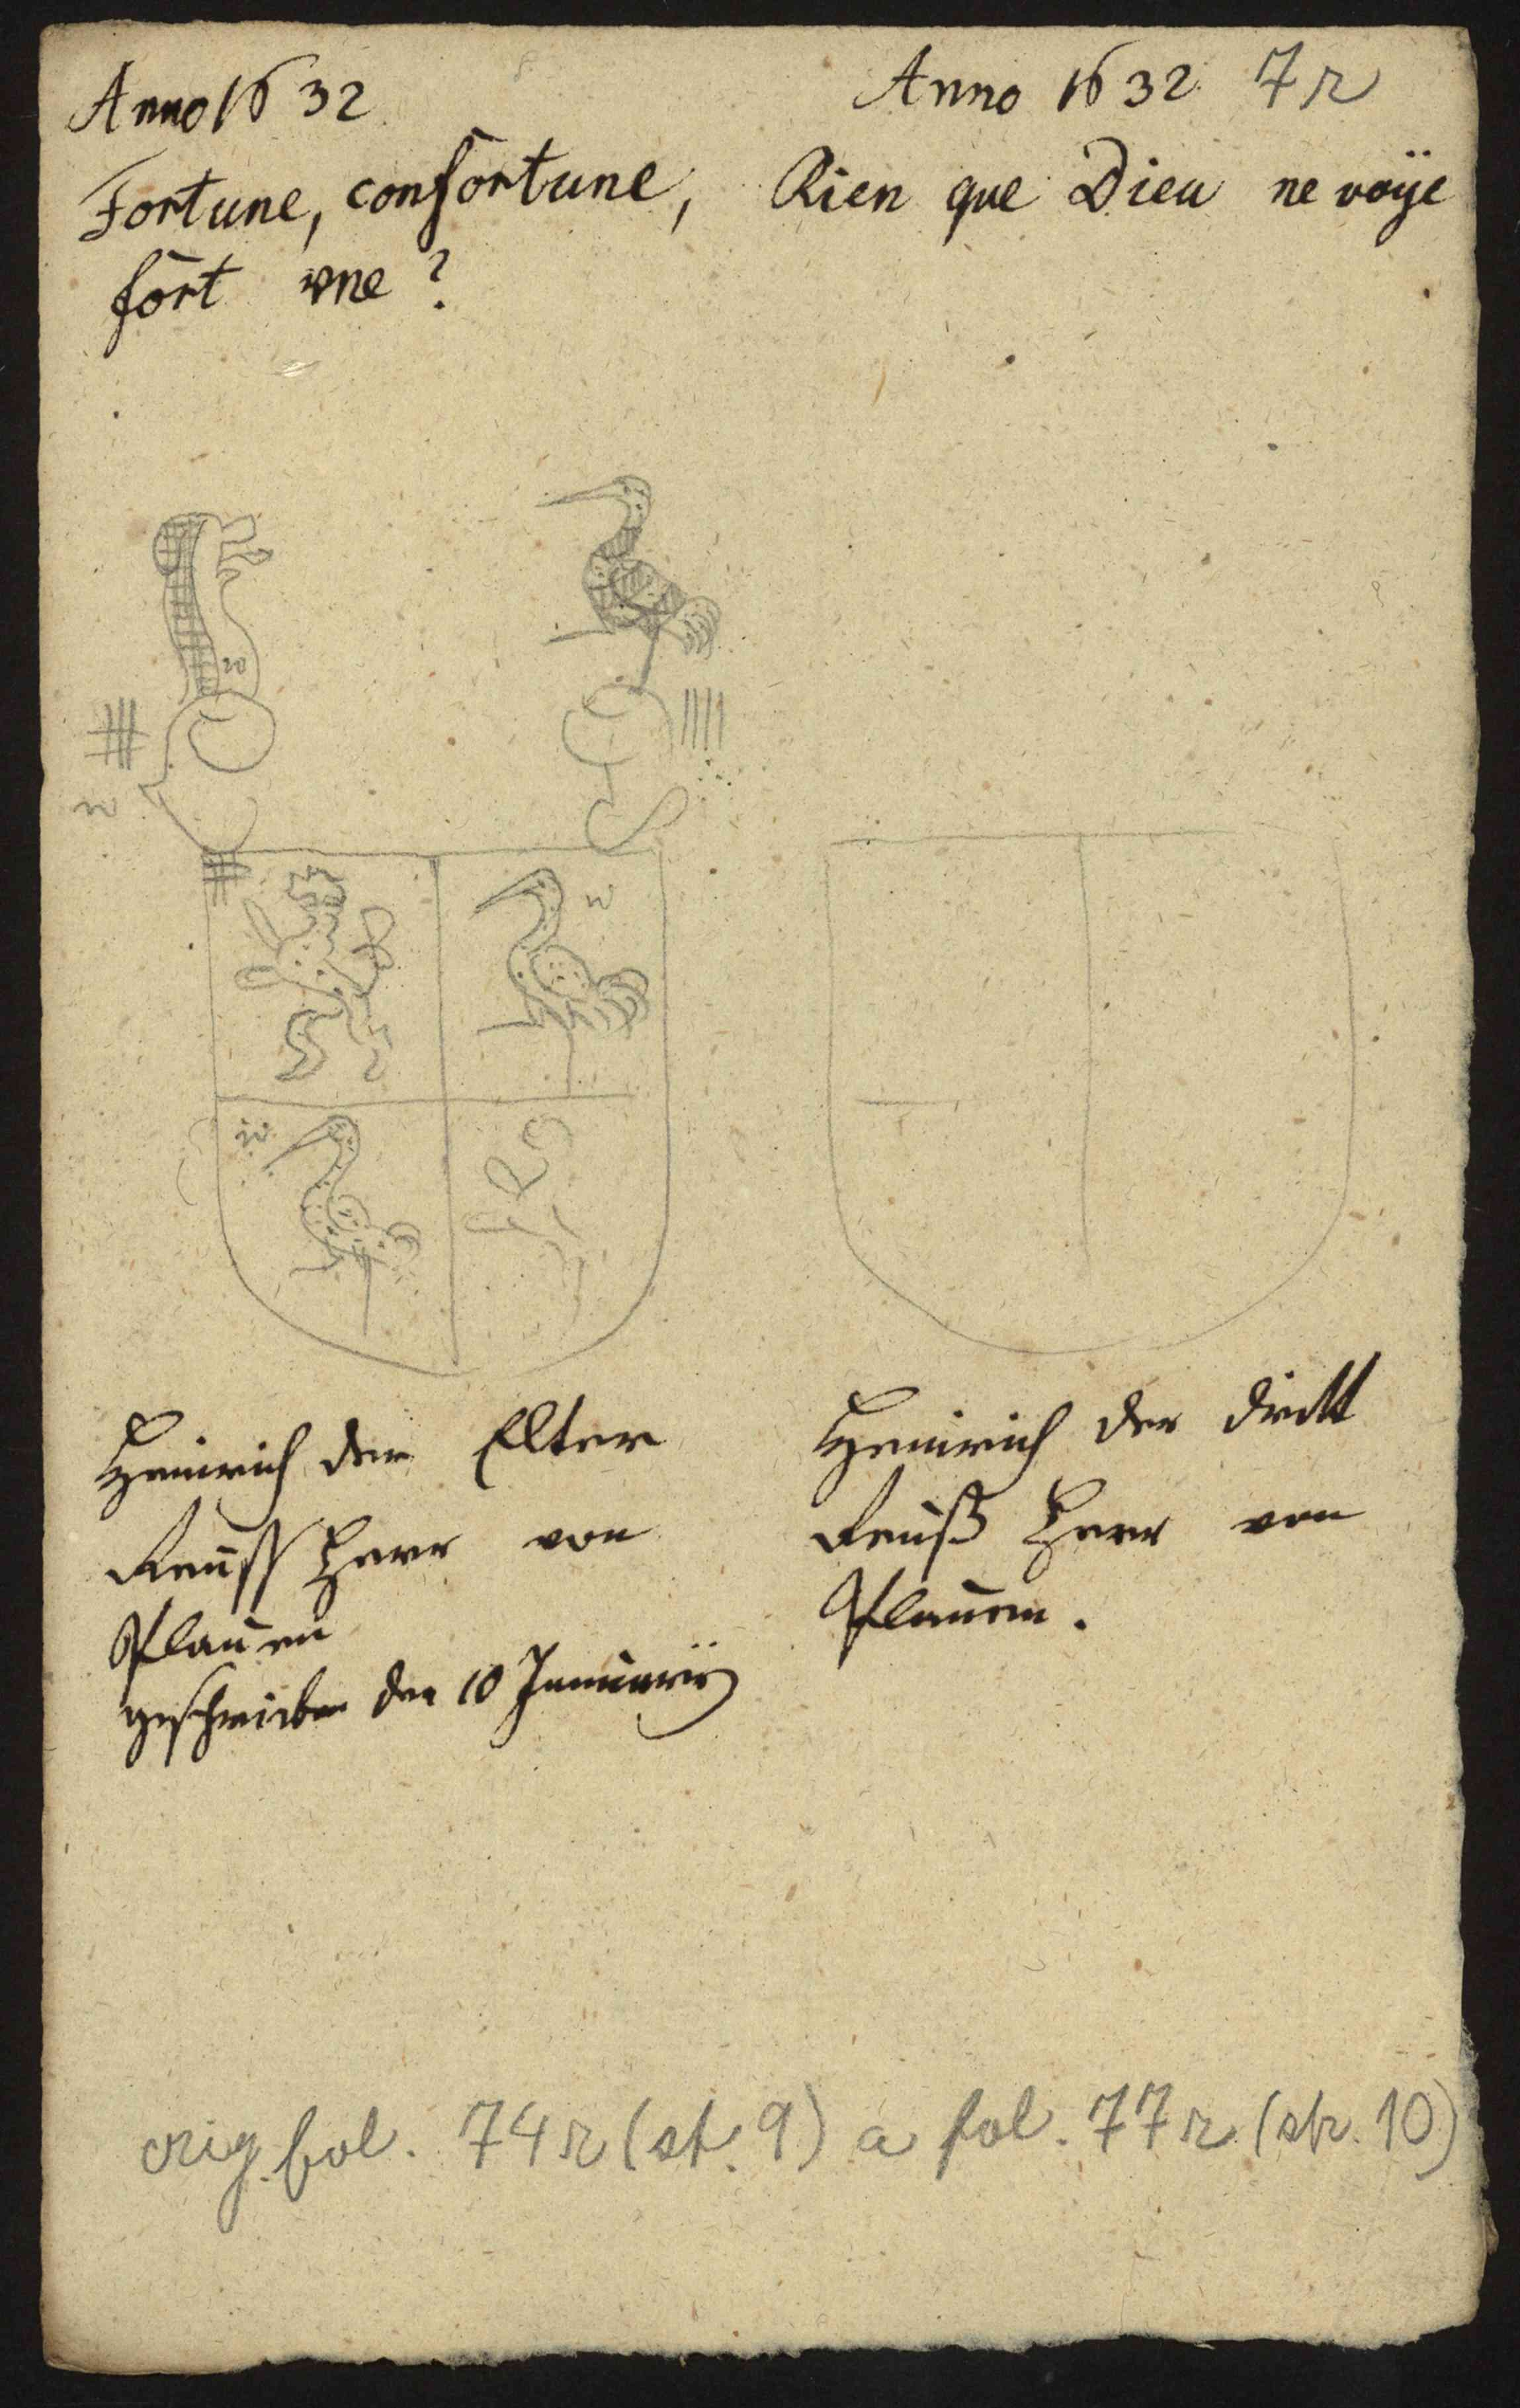 Anno 1632
Fortune, confortune,
fort vne?
w
w
w
w
Heinrich der Elter
Reuss Herr von
Plauen
geschrieben den 10 Januarii
Anno 1632 7r
Rien que Dieu ne voÿe
Heinrich der dritt
Reuß Herr von
Plauen.
orig. fol. 74r (st. 9) a fol. 77r (str. 10)